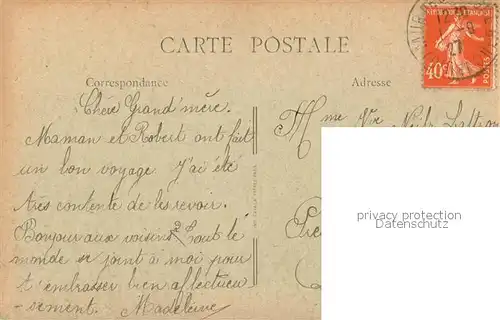 CARTE POSTALE
Correspondance
Adresse
RÉPUBLIQUE FRANÇAISE
40c
POSTES
27
Chère Grand'mère.
Maman et Robert ont fait
un bon voyage. J'ai été
très contente de les revoir.
Bonjour aux voisins. Tout le
monde se joint à moi pour
t'embrasser bien affectueu
sement. Madeleine
Mme Vve
privacy protection
Datenschutz